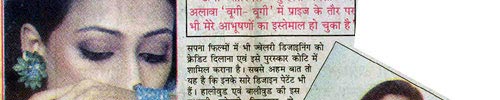 अलावा 'वूगी- वूगी' में प्राइज के तौर पर
भी मेरे आभूषणों का इस्तेमाल हो चुका है
सपना फिल्मों में भी ज्वेलरी डिजाइनिंग को
क्रेडिट दिलाना एवं इसे पुरस्कार कोटि में
शामिल कराना है। सबसे अहम बात तो
यह है कि इनके सारे डिजाइन पेटेंट भी
हैं। हालीवुड एवं बालीवुड की इस